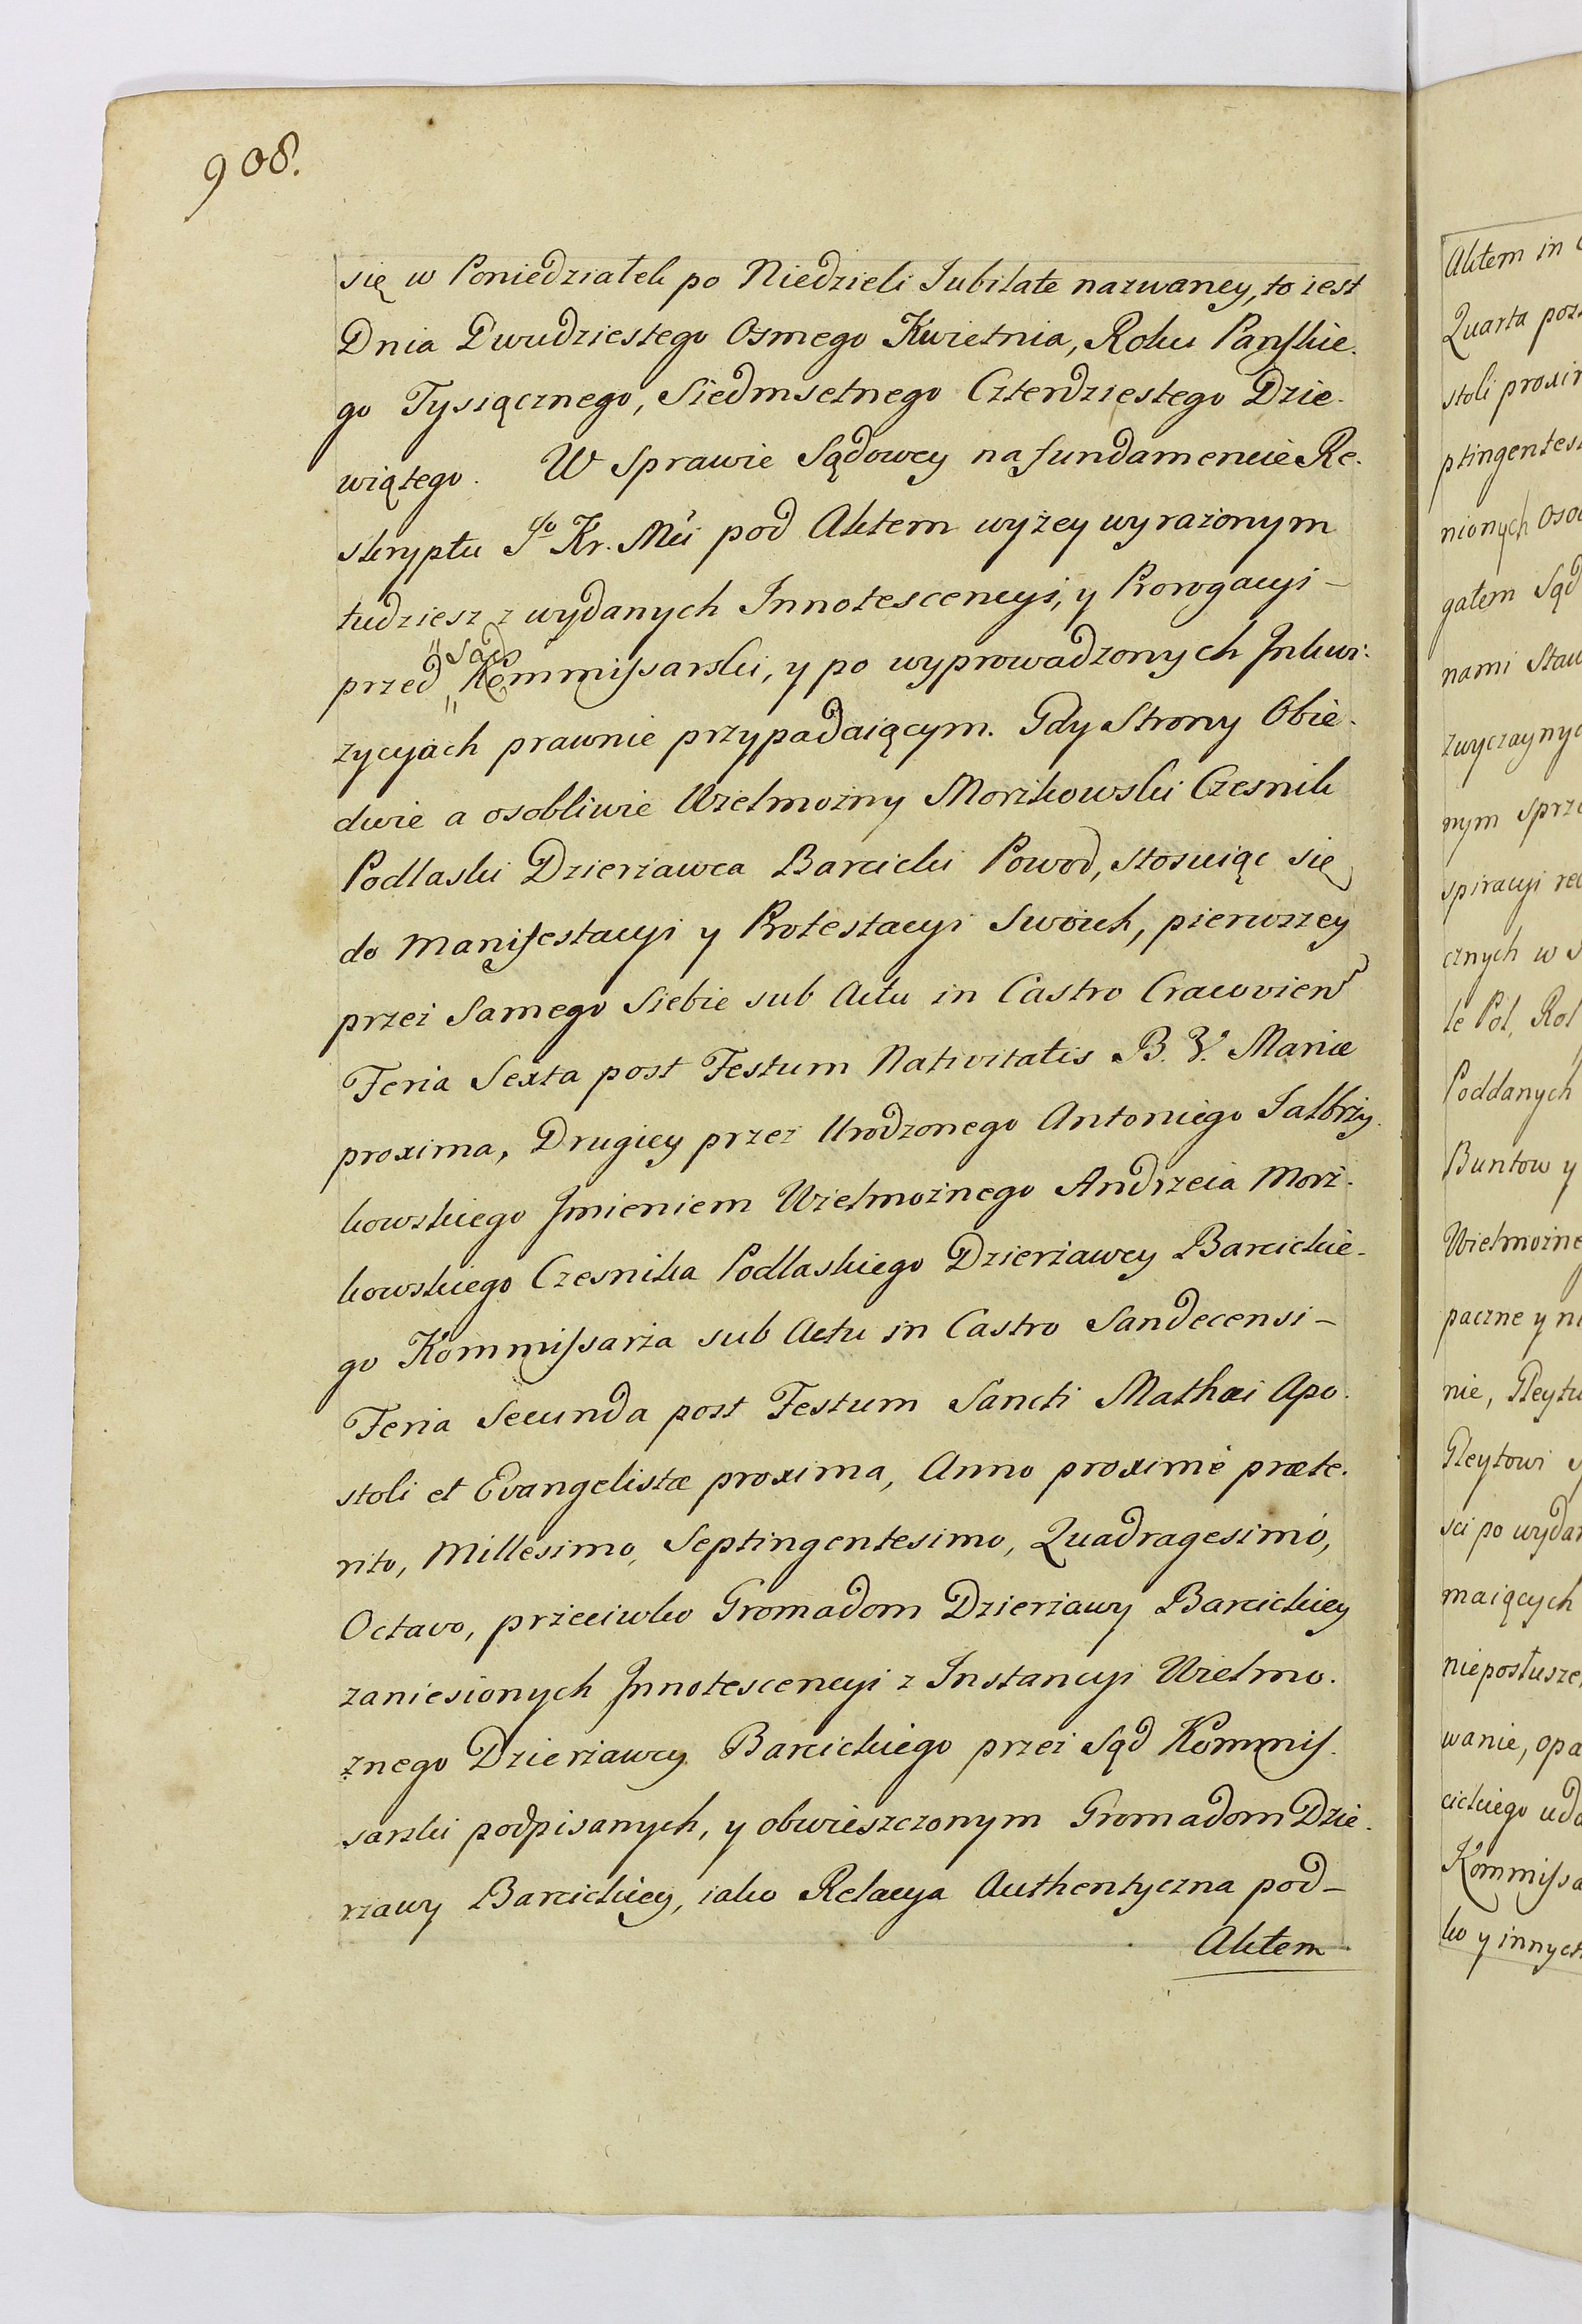 908.
się w Poniedziałek po Niedzieli Jubilate nazwaney, to iest
Dnia Dwudziestego Osmego Kwietnia, Roku Pańskie-
go Tysiącznego, Siedmsetnego Czterdziestego Dzie-
wiątego. W Sprawie Sądowey na fundamencie Re-
skryptu Jo Kr. Mci pod Aktem wyżey wyrażonym
tudziesz z wydanych Innotescencyi, y Prorogacyi –
przed Sąd Kommissarski, y po wyprowadzonych Inkwi-
zycyach prawnie przypadaiącym. Gdy Strony Obie-
dwie a osobliwie Wielmożny Morzkowski Czesnik
Podlaski Dzierżawca Barcicki Powod, stosuiąc się
do Manifestacyi y Protestacyi Swoich, pierwszey
przez Samego Siebie sub Actu in Castro Cracovien
Feria Sexta post Festum Nativitatis B. V. Mariæ
proxima, Drugiey przez Urodzonego Antoniego Jalbrzy-
kowskiego Imieniem Wielmożnego Andrzeia Morz-
kowskiego Czesnika Podlaskiego Dzierżawcy Barcickie-
go Kommissarza sub Actu in Castro Sandecensi –
Feria Secunda post Festum Sancti Mathæi Apo-
stoli et Evangelistæ proxima, Anno proximè præte-
rito, Millesimo, Septingentesimo, Quadragesimo,
Octavo, przeciwko Gromadom Dzierżawy Barcickiey
zaniesionych Innotescencyi z Instancyi Wielmo-
żnego Dzierżawcy Barcickiego przez Sąd Kommis-
sarski podpisanych, y obwieszczonym Gromadom Dzie-
rżawy Barcickiey, iako Relacya Authentyczna pod –
Aktem
Aktem in
Quarta
stoli
nionych
gałem Sąd
nami
nym
cznych w
Poddanych
Buntow y
paczne y
nie,
Gleytowi
sci po
maiących
wanie,
cickiego
ko y innych